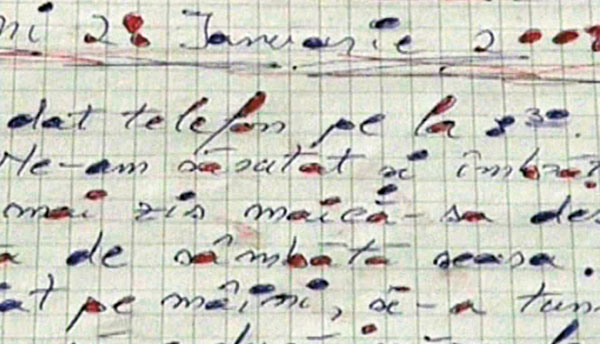 ni 28 Ianuarie 200
dat telefon pe la 8³⁰.
Ne-am sărutat și îmbrăț
mai zis maică-sa des
a de sâmbătă seara.
at pe mâini, și-a tun